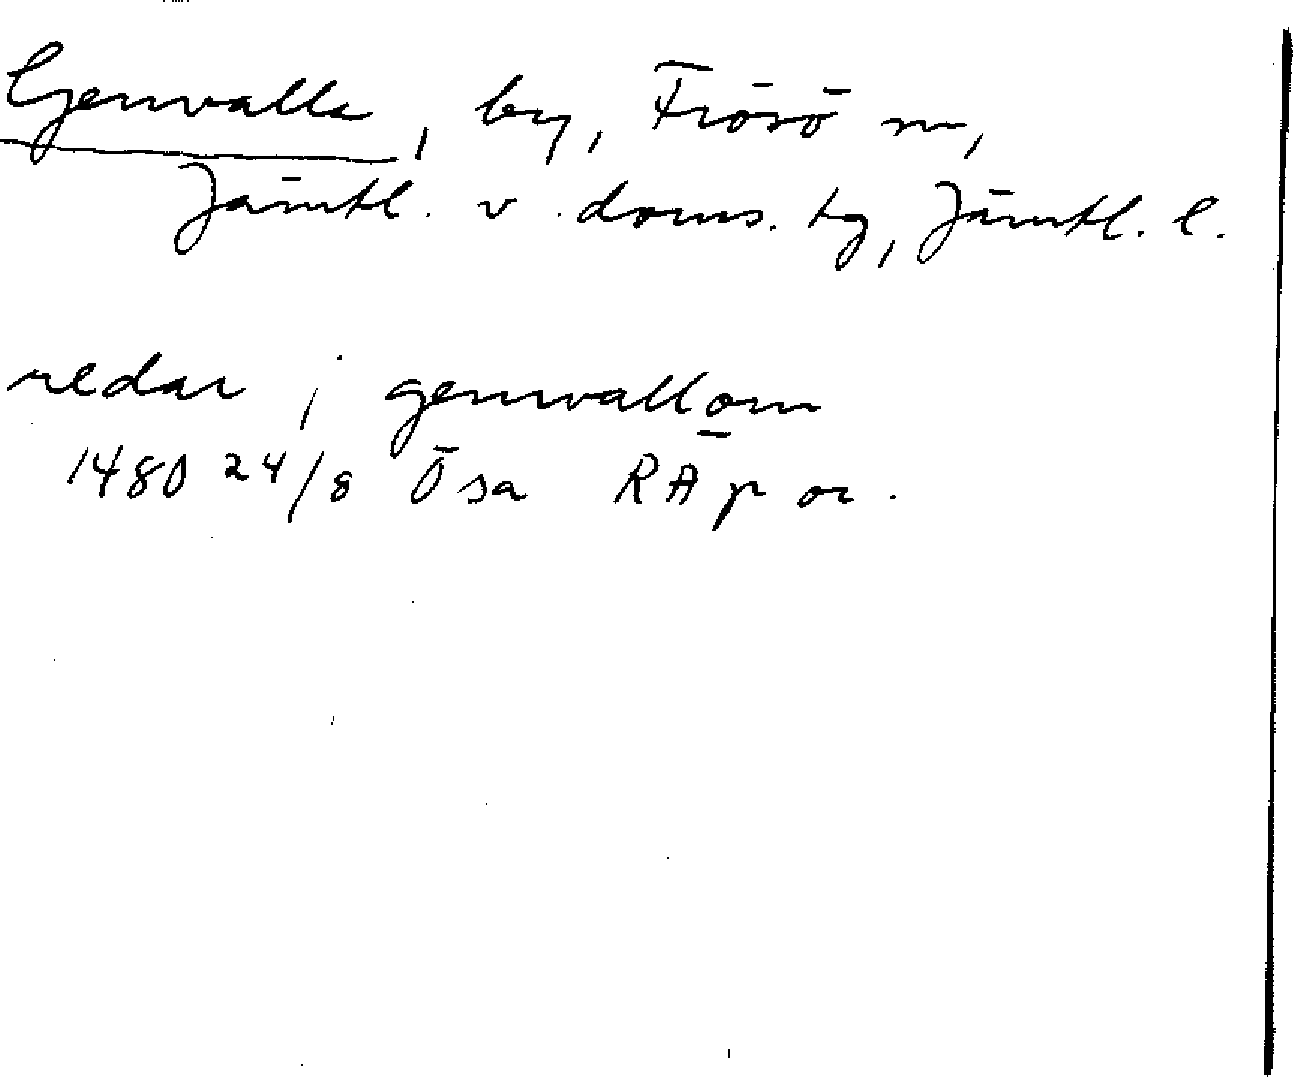 Genvalla, by, Frösö sn,
Jämtl. v. doms. tg, Jämtl. l.
nedar j genvallom
1480 24/8 Ösa RA p or.